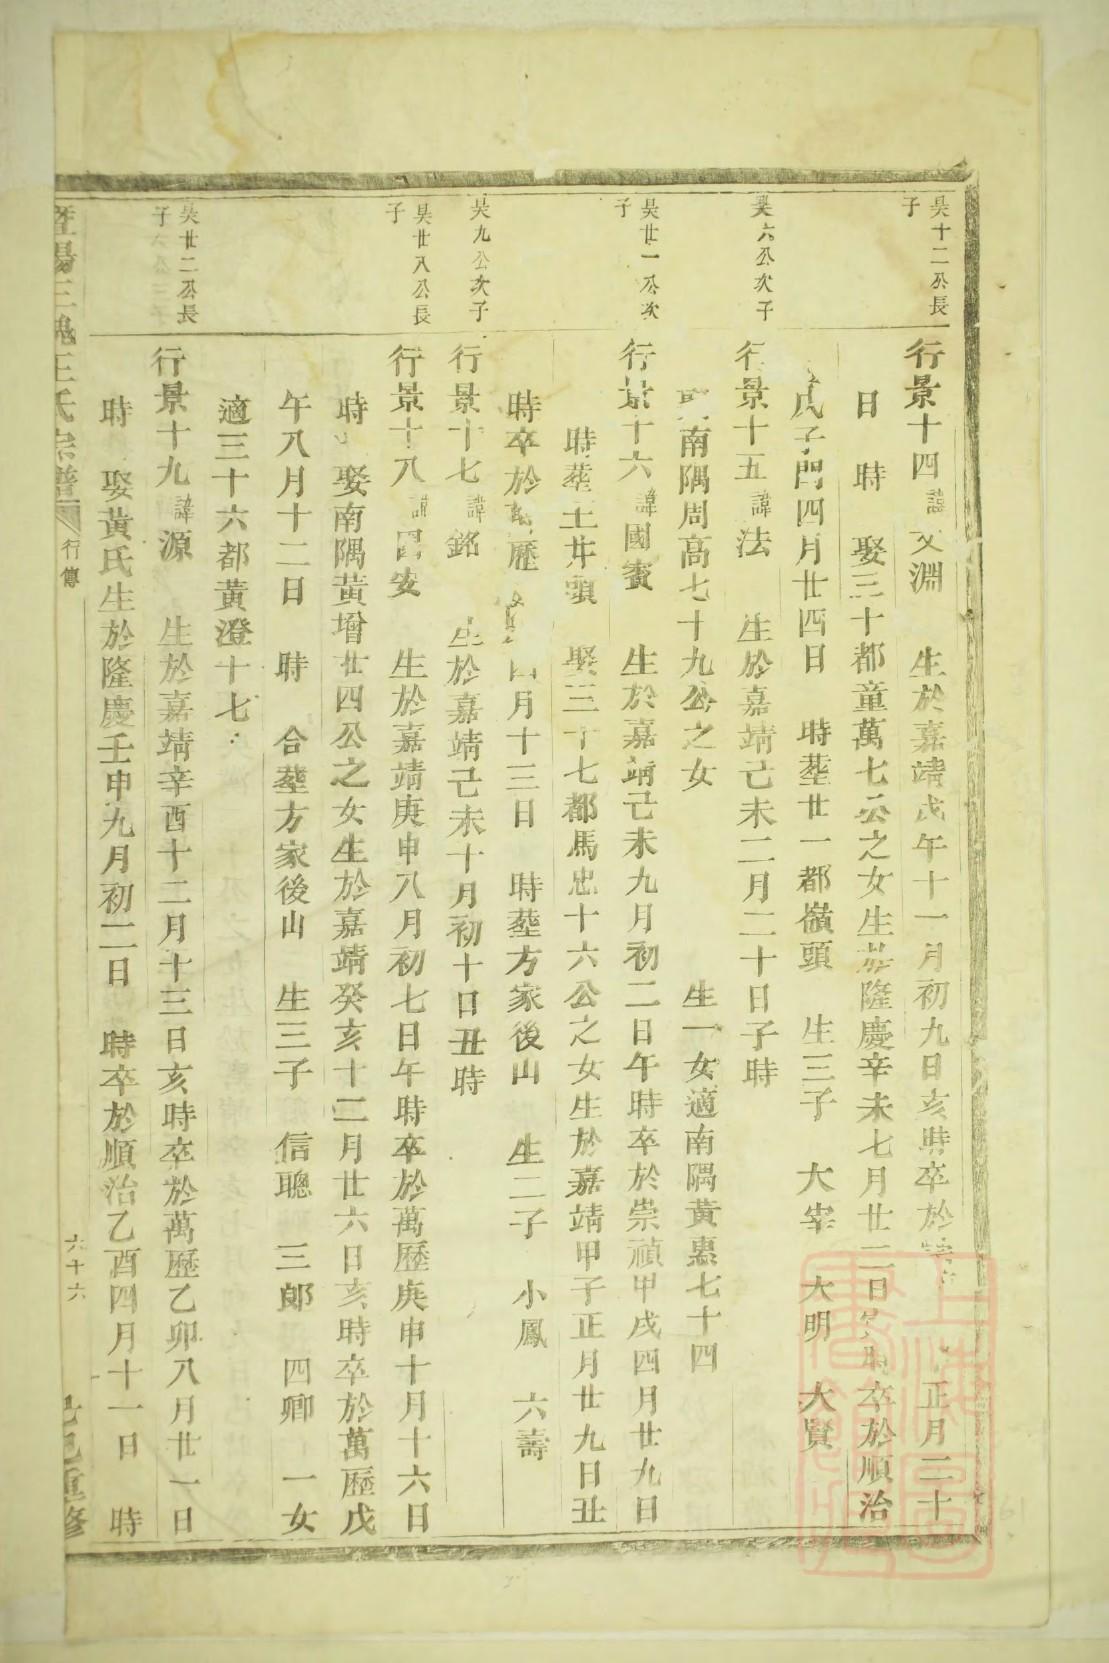 吳十二公長子
行景十四 諱文淵 生於嘉靖戊午十一月初九日亥時卒於 正月二十
日 時 娶三十都童萬七公之女生於隆慶辛未七月廿二日 時卒於順治
戊子閏四月廿四日 時塟廿一都嶺頭 生三子 大宰 大明 大賢
吳六公次子
行景十五 諱法 生於嘉靖己未二月二十日子時
娶南隅周高七十九公之女 生一女適南隅黃惠七十四
吳廿一公次子
行景十六 諱國賓 生於嘉靖己未九月初二日午時卒於崇禎甲戌四月廿九日
時塟土井頭 娶三十七都馬忠十六公之女生於嘉靖甲子正月廿九日丑
時卒於萬歷 四月十三日 時塟方家後山 生二子 小鳳 六壽
吳九公次子
行景十七 諱銘 生於嘉靖己未十月初十日丑時
吳廿八公長子
行景十八 諱國安 生於嘉靖庚申八月初七日午時卒於萬歷庚申十月十六日
時 娶南隅黃增廿四公之女生於嘉靖癸亥十二月廿六日亥時卒於萬歷戊
午八月十二日 時 合塟方家後山 生三子 信聰 三郎 四卿 一女
適三十六都黃澄十七
吳廿二公長子
行景十九 諱源 生於嘉靖辛酉十二月十三日亥時卒於萬歷乙卯八月廿一日
時 娶黃氏生於隆慶壬申九月初二日 時卒於順治乙酉四月十一日 時
暨陽三槐王氏宗譜 行傳 六十六 重修
上海圖書館藏